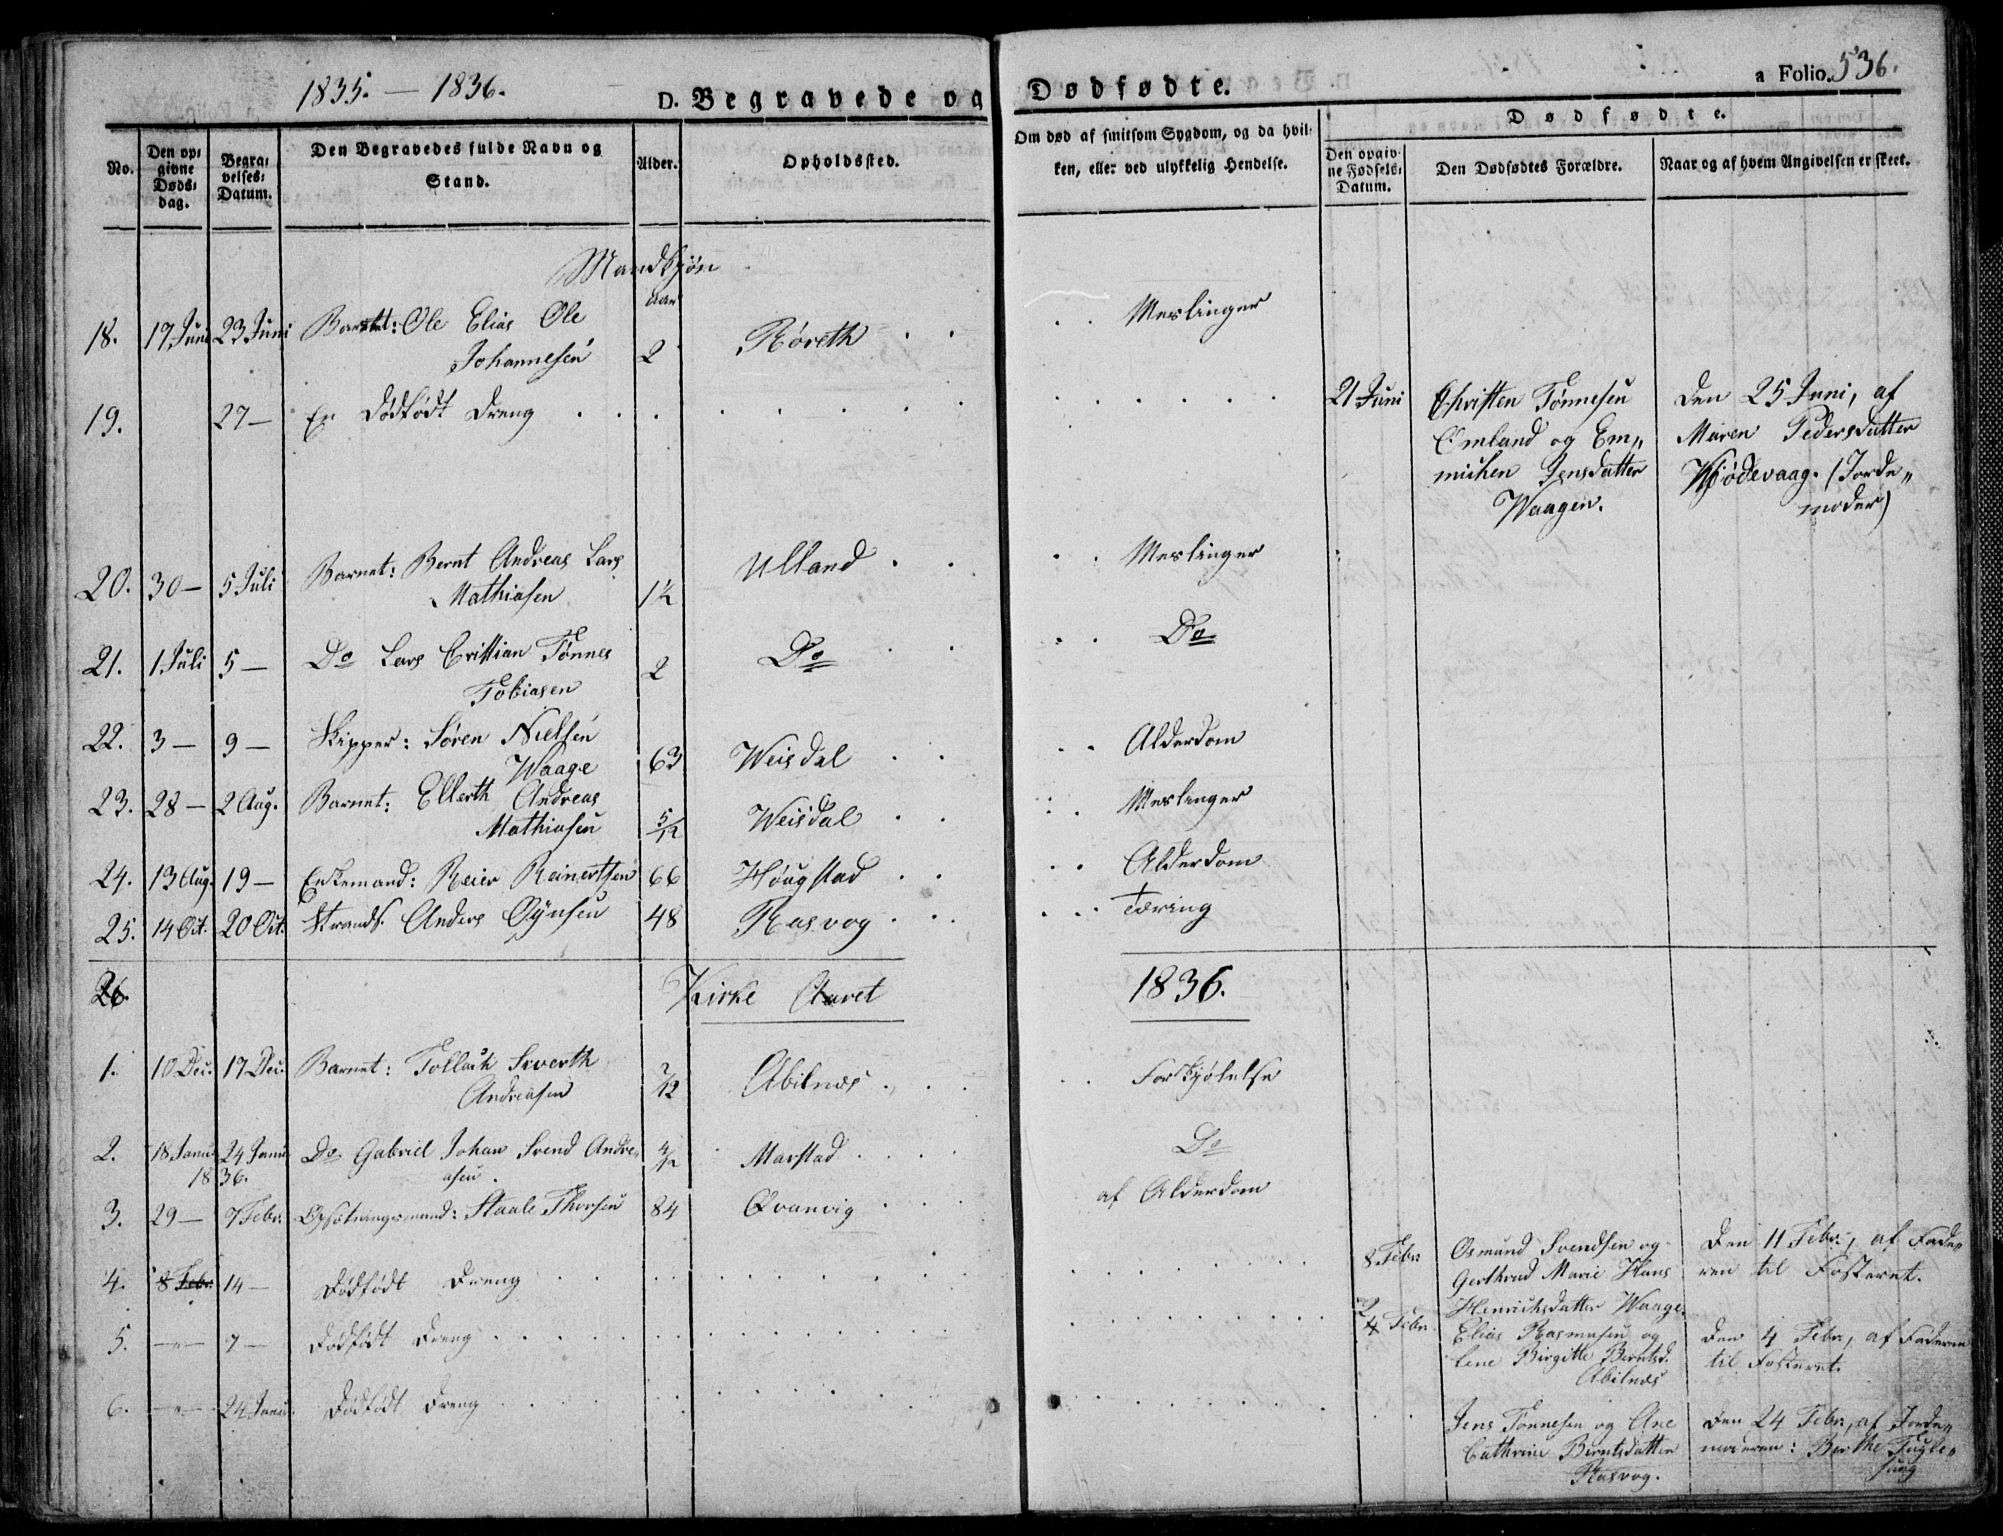 1835. — 1836.
D. Begravede og Dødfødte.
a Folio. 536.
No.
Den op:
givne
Døds:
dag.
Begra:
velses:
Datum.
Den Begravedes fulde Navn og
Stand.
Alder.
Opholdssted.
Om død af smitsom Sygdom, og da hvil:
ken, eller ved ulykkelig Hendelse.
Dødfødte.
Den opgiv:
ne Fødsels:
Datum.
Den Dødfødtes Forældre.
Naar og af hvem Angivelsen er skeet.
Mandkjøn
aar
18. 17 Juni 23 Juni Barnet: Ole Elias Ole
Johannesen 2 Røreth . . . . Meslinger
19. 27 — En Dødfødt Dreng . . . 21 Juni Christen Tønnesen Den 25 Juni, af
Omland og Em„ Maren Pedersdatter
michen Jensdatter Kjødevaag. (Jorde„
Waagen. moder)
20. 30 — 5 Juli Barnet: Bernt Andreas Lars
Mathiasen 1½ Ulland . . . . Meslinger
21. 1 Juli 5 — Do Lars Cristian Tønnes
Tobiasen 2 Do . . . . Do
22. 3 — 9 — Skipper: Søren Nielsen
Waage 63 Weisdal . . . . Alderdom
23. 28 — 2 Aug. Barnet: Ellerth Andreas
Mathiasen 5/12 Weisdal . . . . Meslinger
24. 13 Aug. 19 — Enkemand: Reier Reinertsen 66 Høugstad . . . . Alderdom
25. 14 Oct. 20 Oct. Strands. Anders Oÿnsen 48 Rasvog . . . . Tæring
26.
Kirke Aaret 1836.
1. 10 Dec. 17 Dec. Barnet: Tollach Siverth
Andreasen 7/12 Abilnæs . . . . Forkjølelse
2. 18 Janu. 24 Janu. Do Gabriel Johan Svend Andre„
1836. asen. Marstad . . . . Do
3. 29 — 7 Febr. Opsætningsmand: Staale Thorsen 84 Qvanvig . . . af Alderdom
4. 8 Febr. 14 — Dødfødt Dreng . . . 8 Febr. Osmund Svendsen og Den 11 Febr., af Fade„
Gerthrud Marie Hans ren til Fosteret.
Henrichsdatter Waage.
5. —"— 7 — Dødfødt Dreng . . . 2 4 Febr. Elias Rasmusen og Den 4 Febr., af Faderen
Lene Birgitte Berntsd. til Fosteret.
Abilnæs
6. —"— 24 Janu. Dødfødt Dreng . . . Jens Tønnesen og Ane Den 24 Febr., af Jorde„
Cathrine Berntsdatter moderen: Berthe Fugle„
Rasvog. sang